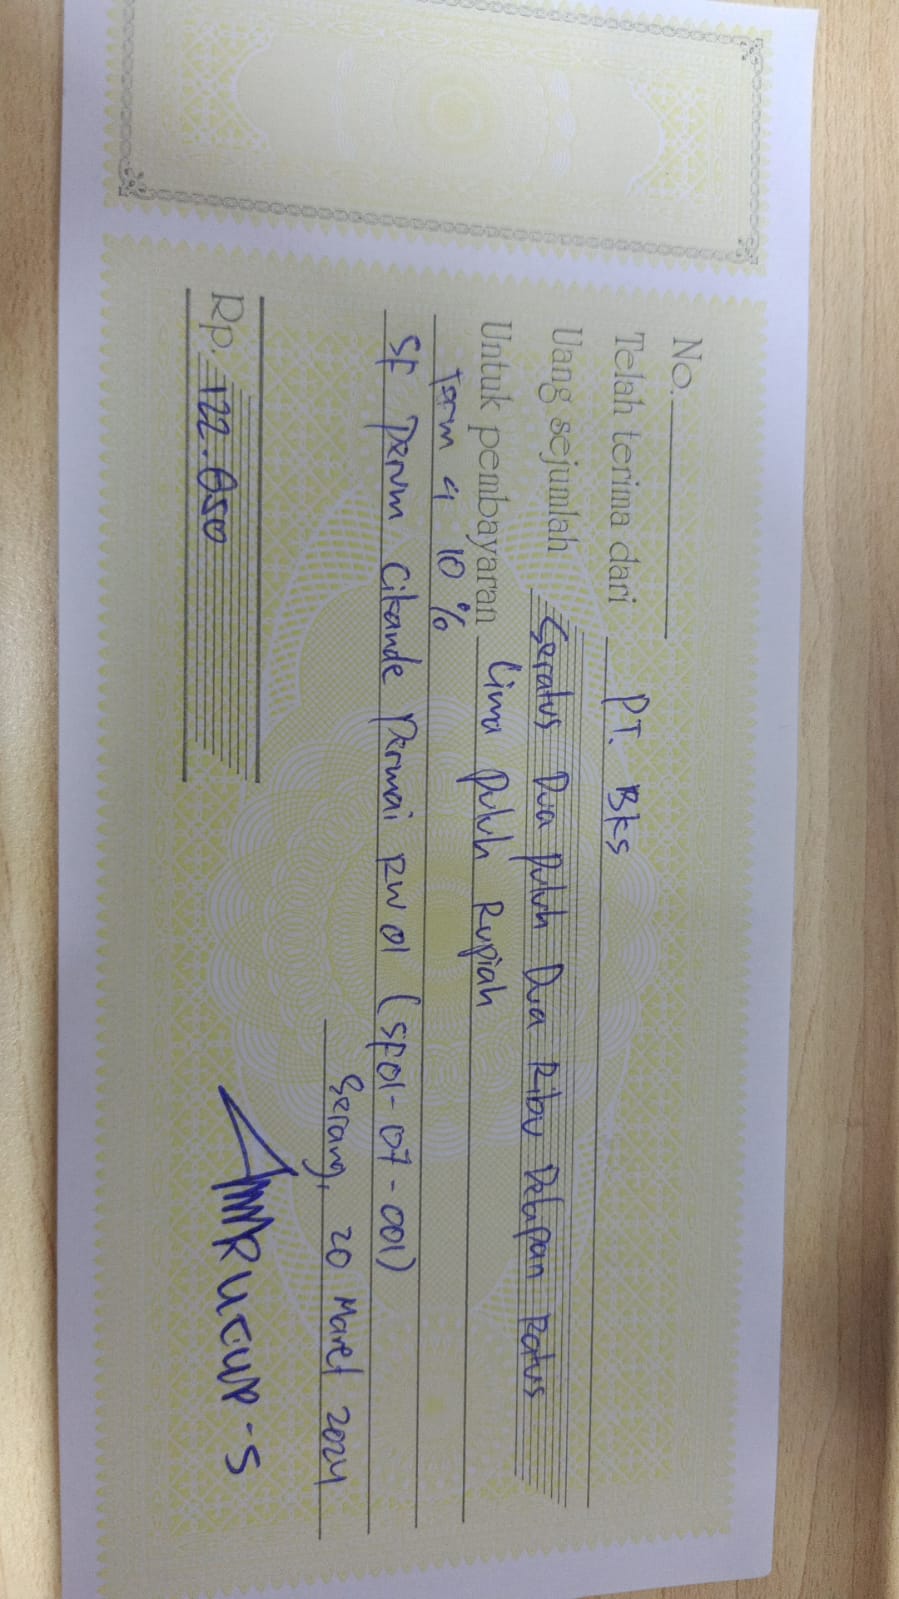 No.
Telah terima dari PT. BKS
Uang sejumlah Seratus Dua puluh Dua Ribu Delapan Ratus
Untuk pembayaran Lima puluh Rupiah
Term 4 10 %
SF Perum Cikande Permai RW 01 (SF01-07-001)
Serang, 20 Maret 2024
Rp. 122.850
Rucup-S